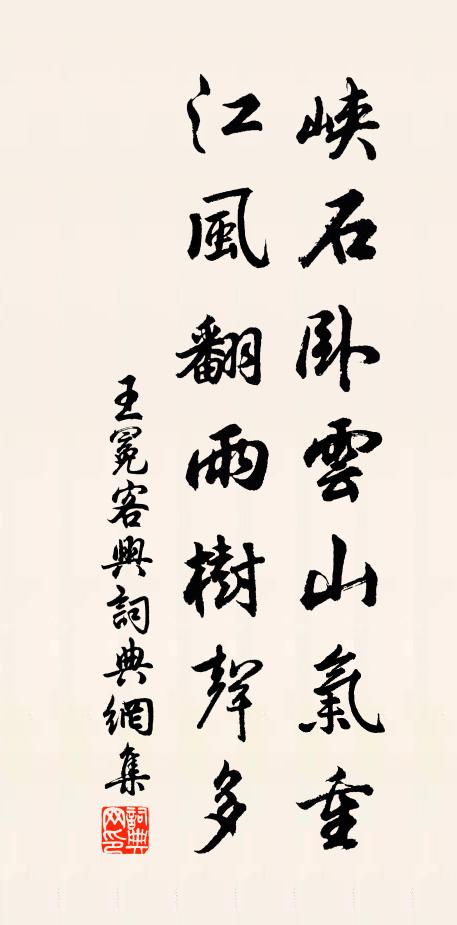 峽石卧雲山氣重
江風翻雨樹聲多
王冕客興詞典網集
詞典网印